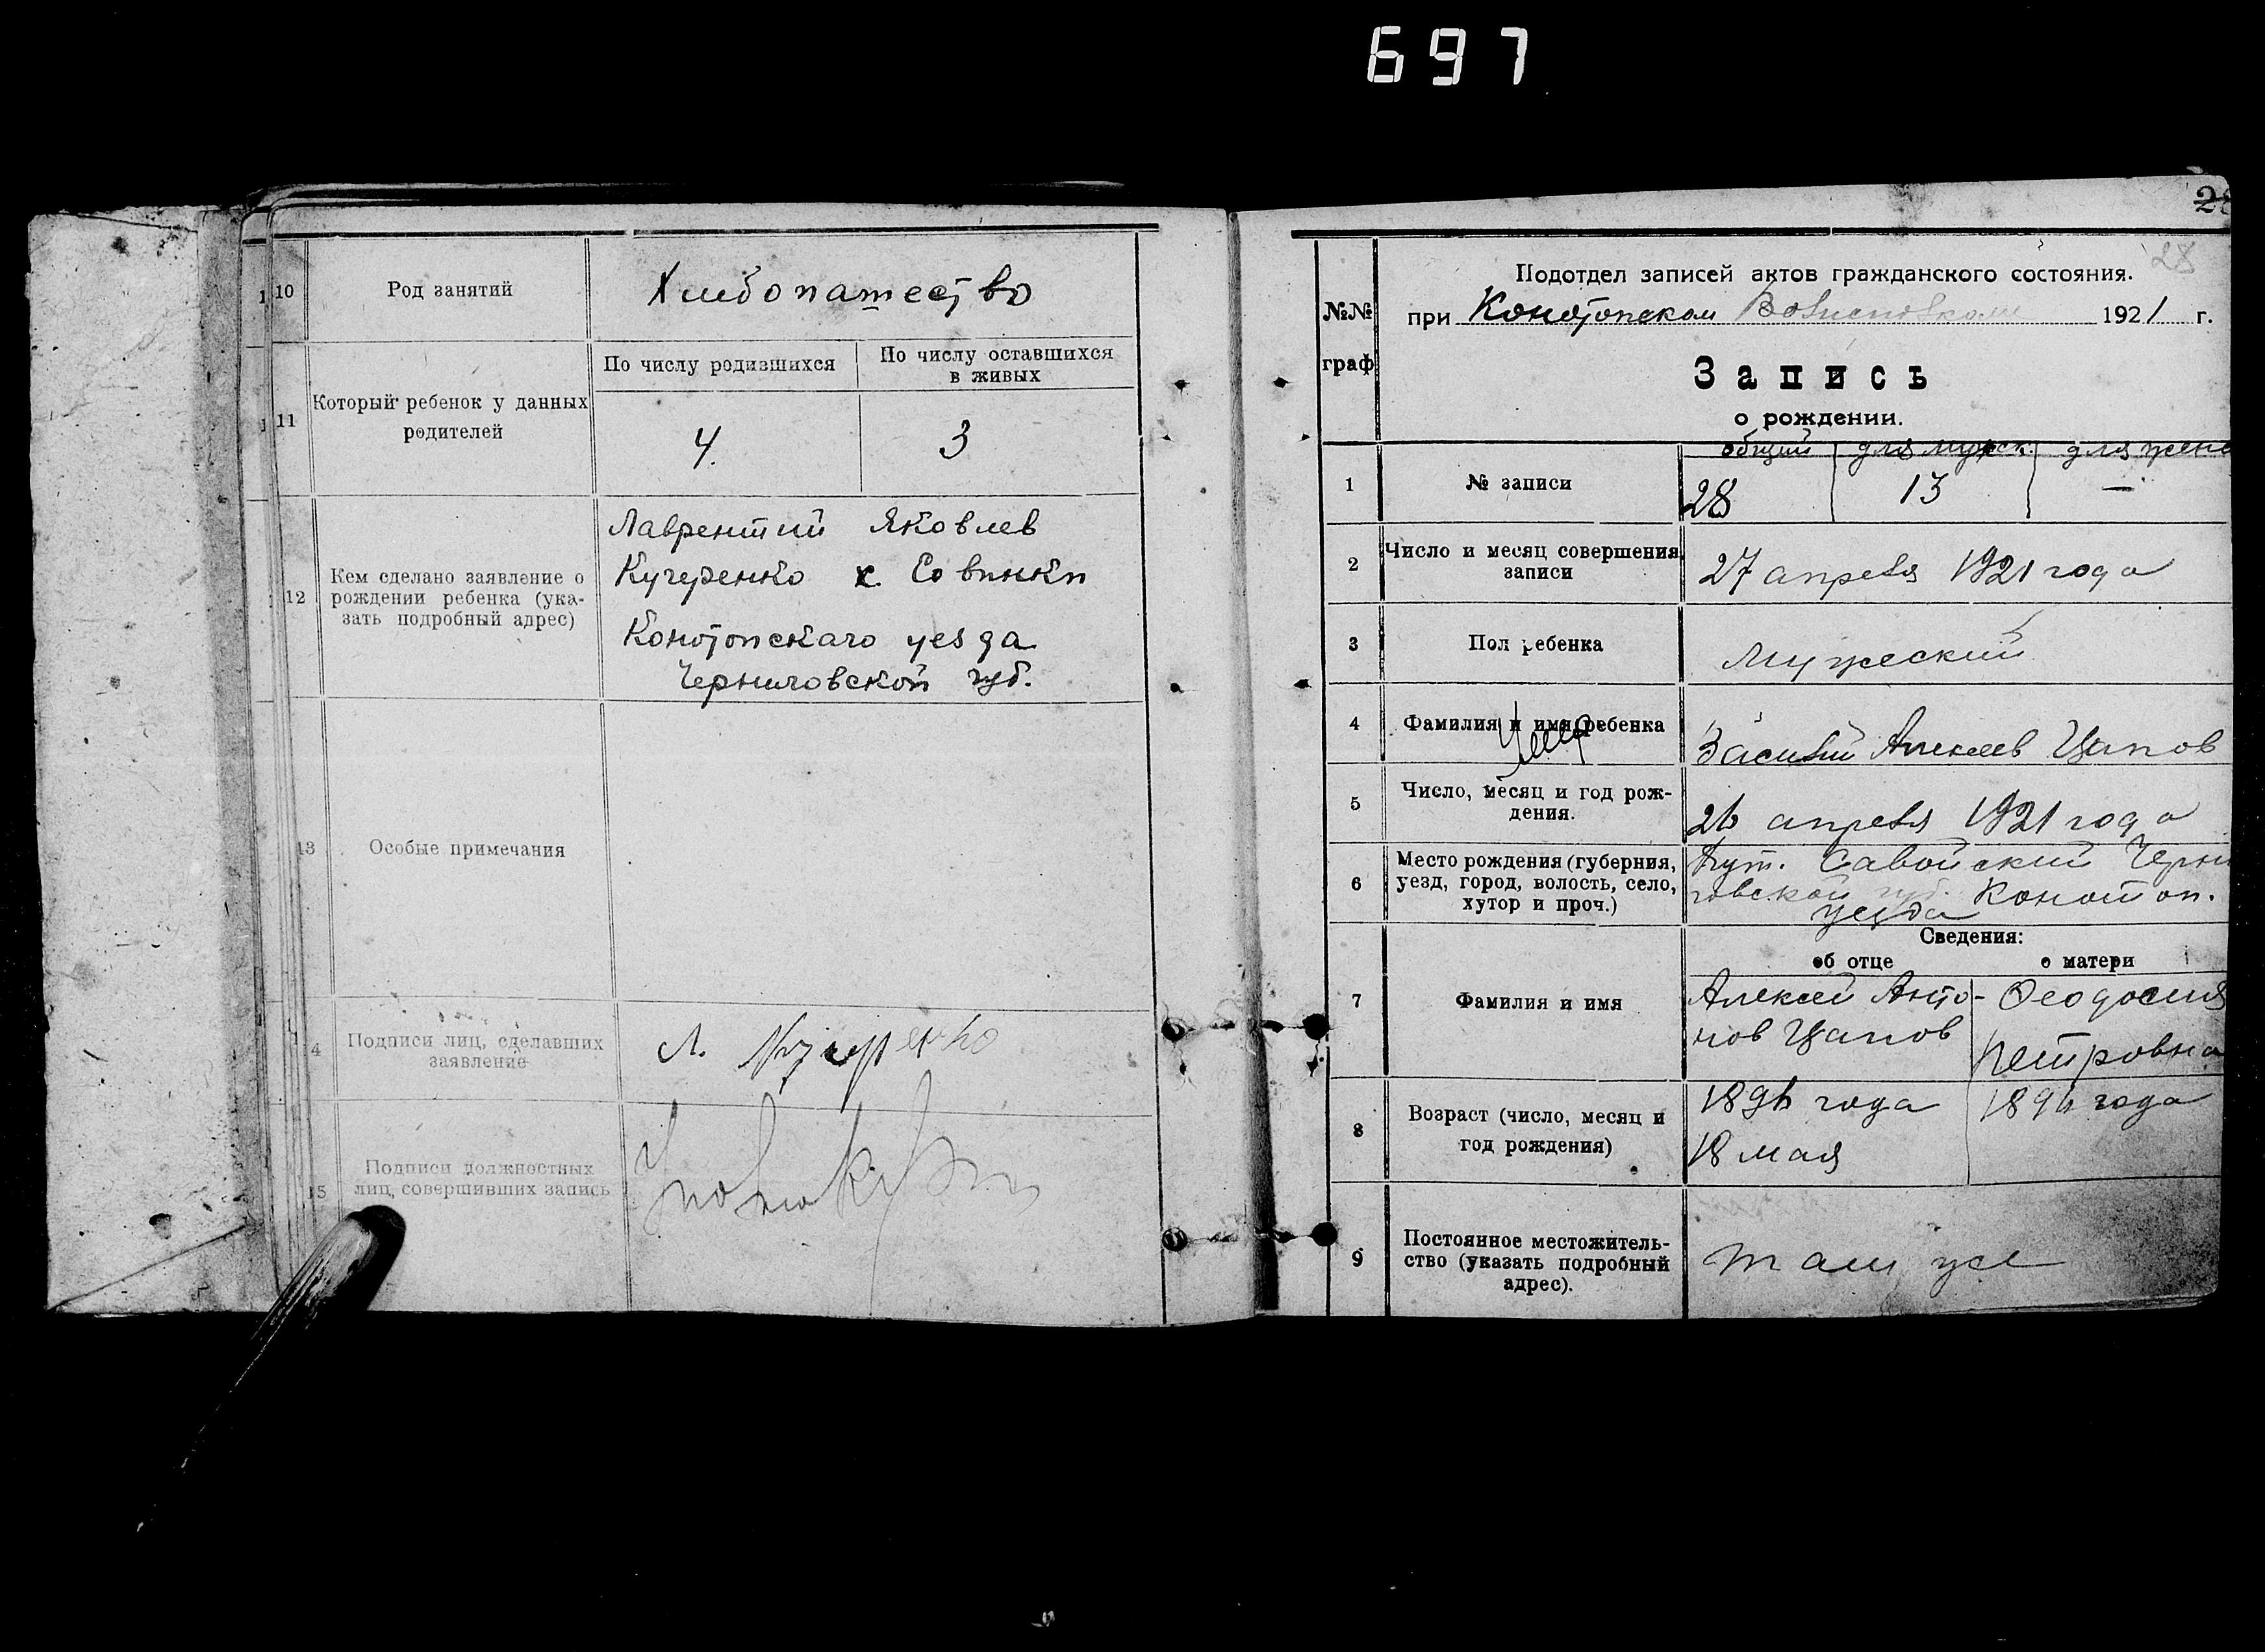 697
10
Род занятий
Хлибопашество
11
Который ребенок у данных
родителей
По числу родившихся
По числу оставшихся
в живых
4.
3
12
Кем сделано заявление о
рождении ребенка (ука-
зать подробный адрес)
Лаврентий Яковлев
Кучеренко х. Совинки
Конотопскаго уезда
Черниговской губ.
13
Особые примечания
4
Подписи лиц, сделавших
заявление
Л. Кучеренко
15
Подписи должностных
лиц, совершивших запись
28
28
№№
граф
Подотдел записей актов гражданского состояния.
при Конотопском 1921 г.
Запись
о рождении.
общий для мужск. для женс
1
№ записи
28
13
—
2
Число и месяц совершения
записи
27 апреля 1921 года
3
Пол ребенка
Мужеский
4
Фамилия и имя ребенка
Умер
Василий Алексеев Цапов
5
Число, месяц и год рож-
дения.
26 апреля 1921 года
6
Место рождения (губерния,
уезд, город, волость, село,
хутор и проч.)
Хут. Савойский Черни
говской губ. Конотоп.
уезда
Сведения:
об отце
о матери
7
Фамилия и имя
Алексей Анто-
нов Цапов
Феодосия
Петровна
8
Возраст (число, месяц и
год рождения)
1896 года
18 мая
1896 года
9
Постоянное местожитель-
ство (указать подробный
адрес).
там же